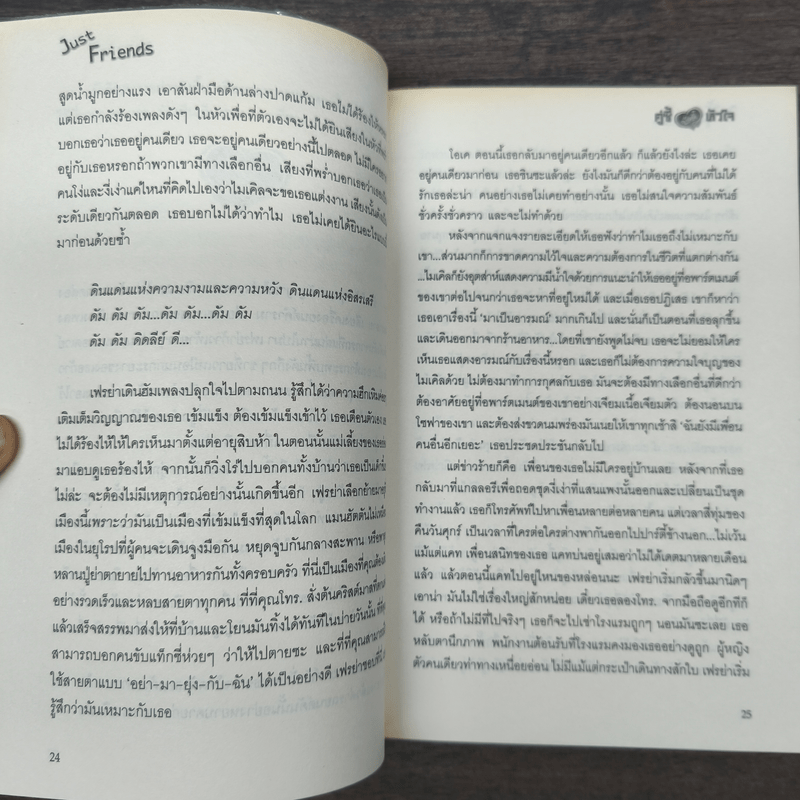 Just
Friends
สูดน้ำมูกอย่างแรง เอาสันฝ่ามือด้านล่างปาดแก้ม เธอไม่ได้ร้องไห้
แต่เธอกำลังร้องเพลงดังๆ ในหัวเพื่อที่ตัวเองจะไม่ได้ยินเสียงในหัวที่
บอกเธอว่าเธออยู่คนเดียว เธอจะอยู่คนเดียวอย่างนี้ไปตลอด ไม่มีใคร
อยู่กับเธอหรอกถ้าพวกเขามีทางเลือกอื่น เสียงที่พร่ำบอกเธอว่า
คนโง่และงี่เง่าแค่ไหนที่คิดไปเองว่าไมเคิลจะขอเธอแต่งงาน เสียงนั้น
ระดับเดียวกันตลอด เธอบอกไม่ได้ว่าทำไม เธอไม่เคยได้ยินอะไร
มาก่อนด้วยซ้ำ
ดินแดนแห่งความงามและความหวัง ดินแดนแห่งอิสรเสรี
ดัม ดัม ดัม...ดัม ดัม...ดัม ดัม
ดัม ดัม ดิดลีย์ ดี...
เฟรย่าเดินฮัมเพลงปลุกใจไปตามถนน รู้สึกได้ว่าความฮึกเหิม
เติมเต็มวิญญาณของเธอ เข้มแข็ง ต้องเข้มแข็งเข้าไว้ เธอเตือนตัวเอง
ไม่ได้ร้องไห้ให้ใครเห็นมาตั้งแต่อายุสิบห้า ในตอนนั้นแม่เลี้ยงของเธอ
มาแอบดูเธอร้องไห้ จากนั้นก็วิ่งโร่ไปบอกคนทั้งบ้านว่าเธอเป็นเด็ก
ไม่ล่ะ จะต้องไม่มีเหตุการณ์อย่างนั้นเกิดขึ้นอีก เฟรย่าเลือกย้ายมาอยู่
เมืองนี้เพราะว่ามันเป็นเมืองที่เข้มแข็งที่สุดในโลก แมนฮัตตันไม่เหมือน
เมืองในยุโรปที่ผู้คนจะเดินจูงมือกัน หยุดจูบกันกลางสะพาน หรือพา
หลานปู่ย่าตายายไปทานอาหารกันทั้งครอบครัว ที่นี่เป็นเมืองที่คุณต้อง
อย่างรวดเร็วและหลบสายตาทุกคน ที่ที่คุณโทร. สั่งต้นคริสต์มาสที่
แล้วเสร็จสรรพมาส่งให้ที่บ้านและโยนมันทิ้งได้ทันทีในบ่ายวันนั้น ที่ที่คุณ
สามารถบอกคนขับแท็กซี่ห่วยๆ ว่าให้ไปตายซะ และที่ที่คุณสามารถ
ใช้สายตาแบบ ‘อย่า-มา-ยุ่ง-กับ-ฉัน’ ได้เป็นอย่างดี เฟรย่าชอบที่นี่
รู้สึกว่ามันเหมาะกับเธอ
24
คู่ซี้ หัวใจ
โอเค ตอนนี้เธอกลับมาอยู่คนเดียวอีกแล้ว ก็แล้วยังไงล่ะ เธอเคย
อยู่คนเดียวมาก่อน เธอชินซะแล้วล่ะ ยังไงมันก็ดีกว่าต้องอยู่กับคนที่ไม่ได้
รักเธอล่ะน่า คนอย่างเธอไม่เคยทำอย่างนั้น เธอไม่สนใจความสัมพันธ์
ชั่วครั้งชั่วคราว และจะไม่ทำด้วย
หลังจากแจกแจงรายละเอียดให้เธอฟังว่าทำไมเธอถึงไม่เหมาะกับ
เขา...ส่วนมากก็การขาดความไว้ใจและความต้องการในชีวิตที่แตกต่างกัน
...ไมเคิลก็ยังอุตส่าห์แสดงความมีน้ำใจด้วยการแนะนำให้เธออยู่ที่อพาร์ตเมนต์
ของเขาต่อไปจนกว่าเธอจะหาที่อยู่ใหม่ได้ และเมื่อเธอปฏิเสธ เขาก็หาว่า
เธอเอาเรื่องนี้ ‘มาเป็นอารมณ์’ มากเกินไป และนั่นก็เป็นตอนที่เธอลุกขึ้น
และเดินออกมาจากร้านอาหาร...โดยที่เขายังพูดไม่จบ เธอจะไม่ยอมให้ใคร
เห็นเธอแสดงอารมณ์กับเรื่องนี้หรอก และเธอก็ไม่ต้องการความใจบุญของ
ไมเคิลด้วย ไม่ต้องมาทำการกุศลกับเธอ มันจะต้องมีทางเลือกอื่นที่ดีกว่า
ต้องอาศัยอยู่ที่อพาร์ตเมนต์ของเขาอย่างเจียมเนื้อเจียมตัว ต้องนอนบน
โซฟาของเขา และต้องส่งขวดนมพร่องมันเนยให้เขาทุกเช้าสิ ‘ฉันยังมีเพื่อน
คนอื่นอีกเยอะ’ เธอประชดประชันกลับไป
แต่ข่าวร้ายก็คือ เพื่อนของเธอไม่มีใครอยู่บ้านเลย หลังจากที่เธอ
กลับมาที่แกลลอรีเพื่อถอดชุดงี่เง่าที่แสนแพงนั้นออกและเปลี่ยนเป็นชุด
ทำงานแล้ว เธอก็โทรศัพท์ไปหาเพื่อนหลายต่อหลายคน แต่เวลาสี่ทุ่มของ
คืนวันศุกร์ เป็นเวลาที่ใครต่อใครต่างพากันออกไปปาร์ตี้ข้างนอก...ไม่เว้น
แม้แต่แคท เพื่อนสนิทของเธอ แคทบ่นอยู่เสมอว่าไม่ได้เดตมาหลายเดือน
แล้ว แล้วตอนนี้แคทไปอยู่ไหนของหล่อนนะ เฟรย่าเริ่มกลัวขึ้นมานิดๆ
เอาน่า มันไม่ใช่เรื่องใหญ่สักหน่อย เดี๋ยวเธอลองโทร. จากมือถือดูอีกทีก็
ได้ หรือถ้าไม่มีที่ไปจริงๆ เธอก็จะไปเช่าโรงแรมถูกๆ นอนมันซะเลย เธอ
หลับตานึกภาพ พนักงานต้อนรับที่โรงแรมคงมองเธออย่างดูถูก ผู้หญิง
ตัวคนเดียวท่าทางเหนื่อยอ่อน ไม่มีแม้แต่กระเป๋าเดินทางสักใบ เฟรย่าเริ่ม
25